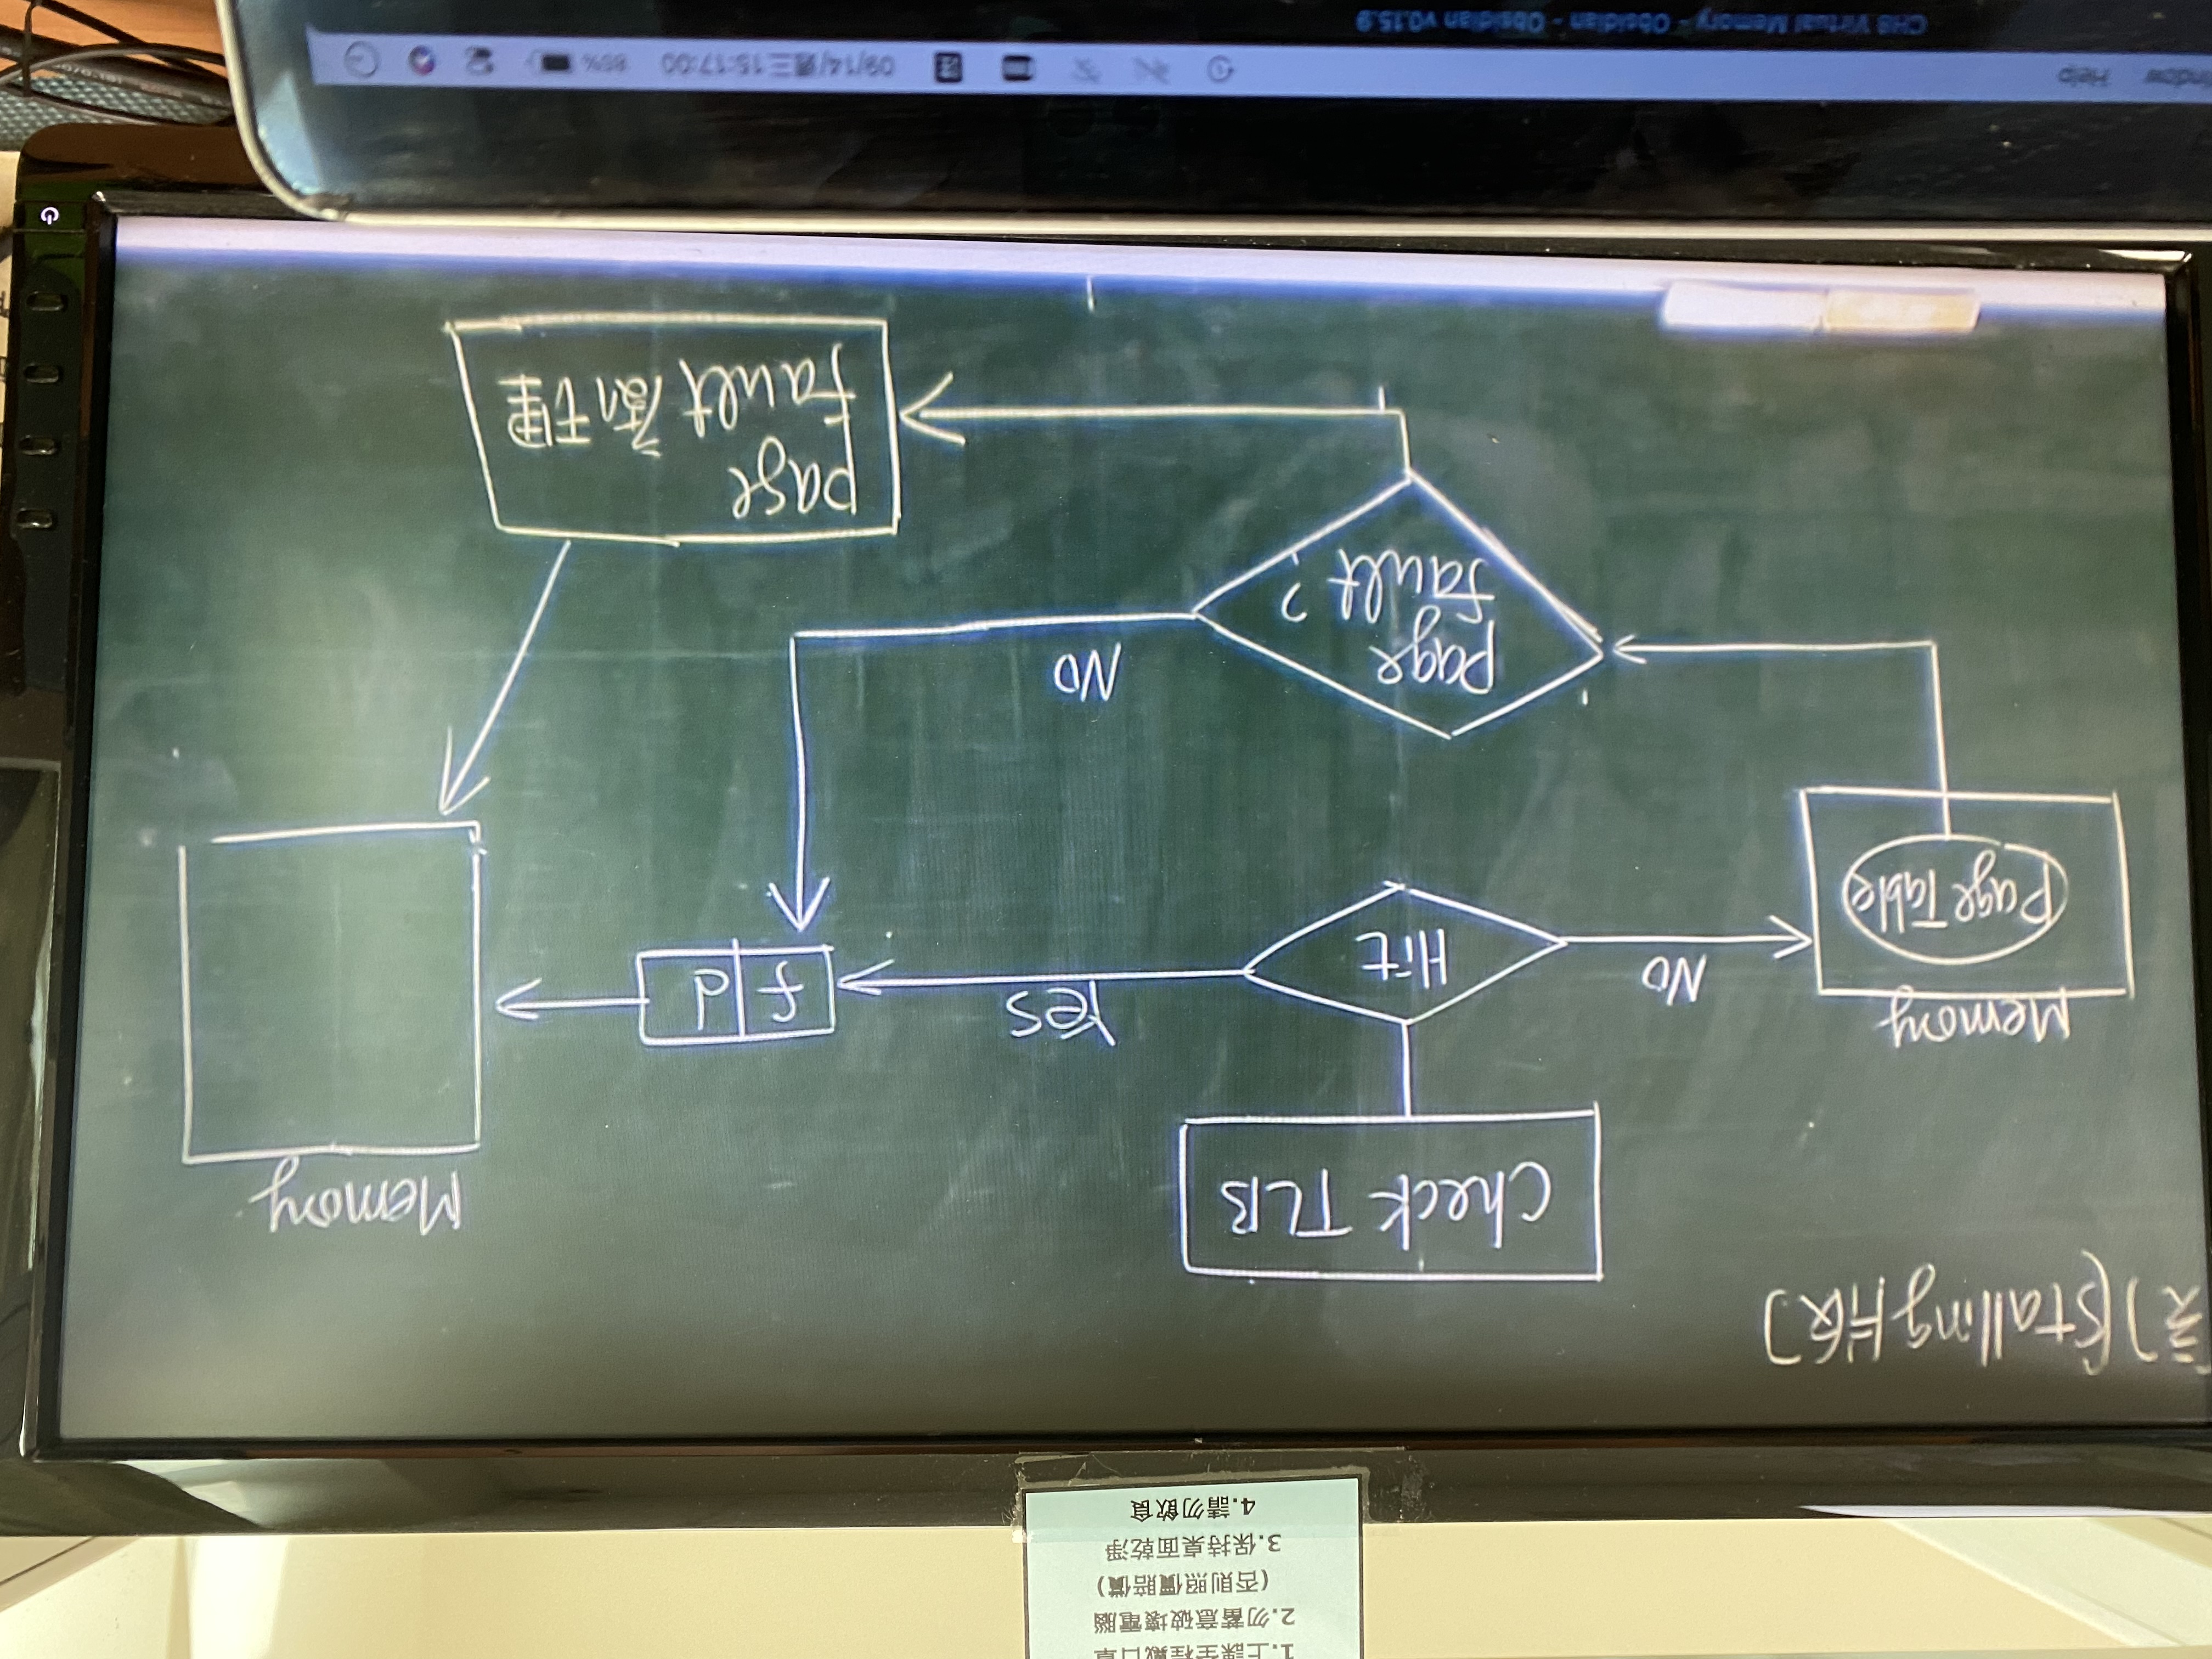 1.上課全程戴口罩
2.勿蓄意破壞電腦
(否則照價賠償)
3.保持桌面乾淨
4.請勿飲食
[stalling版]
Check TLB
Memory
Memory
Page Table
NO
Hit
Yes
f d
page
fault?
NO
page
fault處理
Window Help
注
09/14/週三 15:17:00 85%
CH8 Virtual Memory - Obsidian - Obsidian v0.15.9